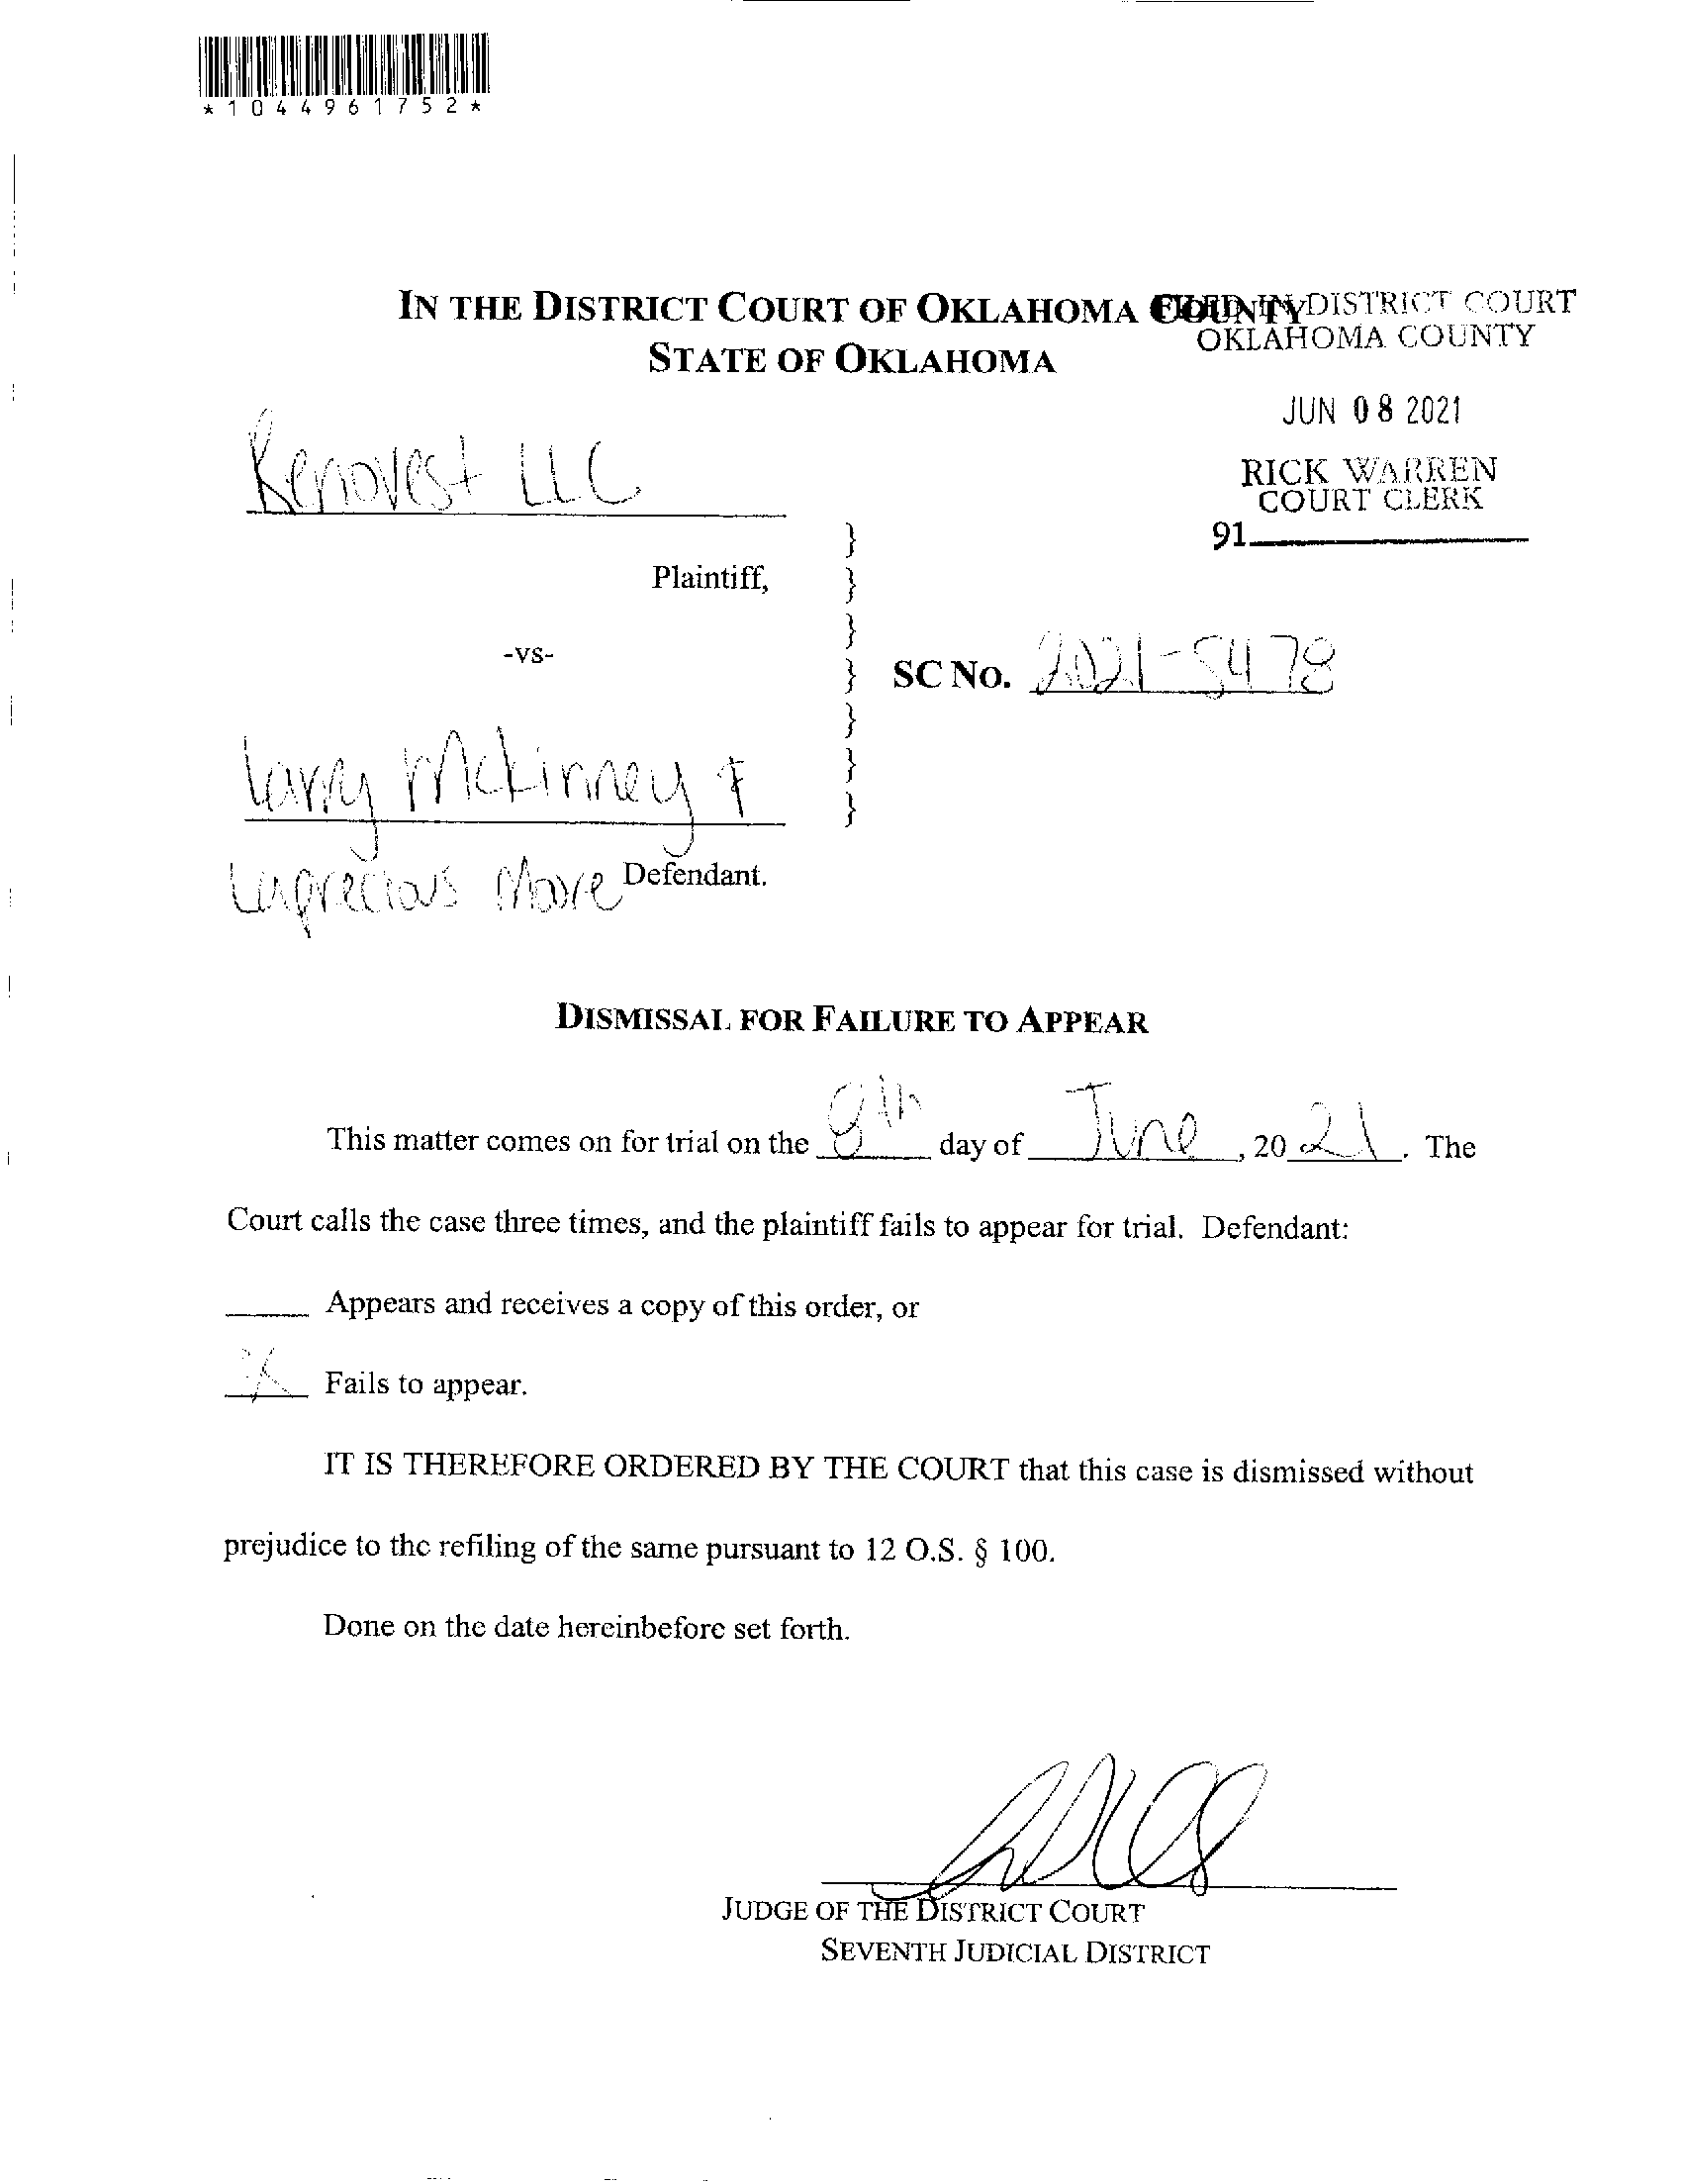 *1044961752*
IN THE DISTRICT COURT OF OKLAHOMA COUNTY
STATE OF OKLAHOMA
FILED IN DISTRICT COURT
OKLAHOMA COUNTY
JUN 08 2021
RICK WARREN
COURT CLERK
91
Renovest LLC
Plaintiff,
-vs-
SC NO. 2021-5478
Larry McKinney &
Moore
Defendant.
DISMISSAL FOR FAILURE TO APPEAR
This matter comes on for trial on the 8th day of June, 2021. The
Court calls the case three times, and the plaintiff fails to appear for trial. Defendant:
____ Appears and receives a copy of this order, or
X Fails to appear.
IT IS THEREFORE ORDERED BY THE COURT that this case is dismissed without
prejudice to the refiling of the same pursuant to 12 O.S. § 100.
Done on the date hereinbefore set forth.
JUDGE OF THE DISTRICT COURT
SEVENTH JUDICIAL DISTRICT